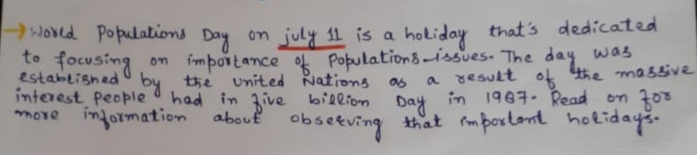 → World Populations Day on july 11 is a holiday that's dedicated
to focusing on importance of Populations-issues. The day was
established by the United Nations as a result of the massive
interest people had in five billion Day in 1987. Read on for
more information about observing that important holidays.